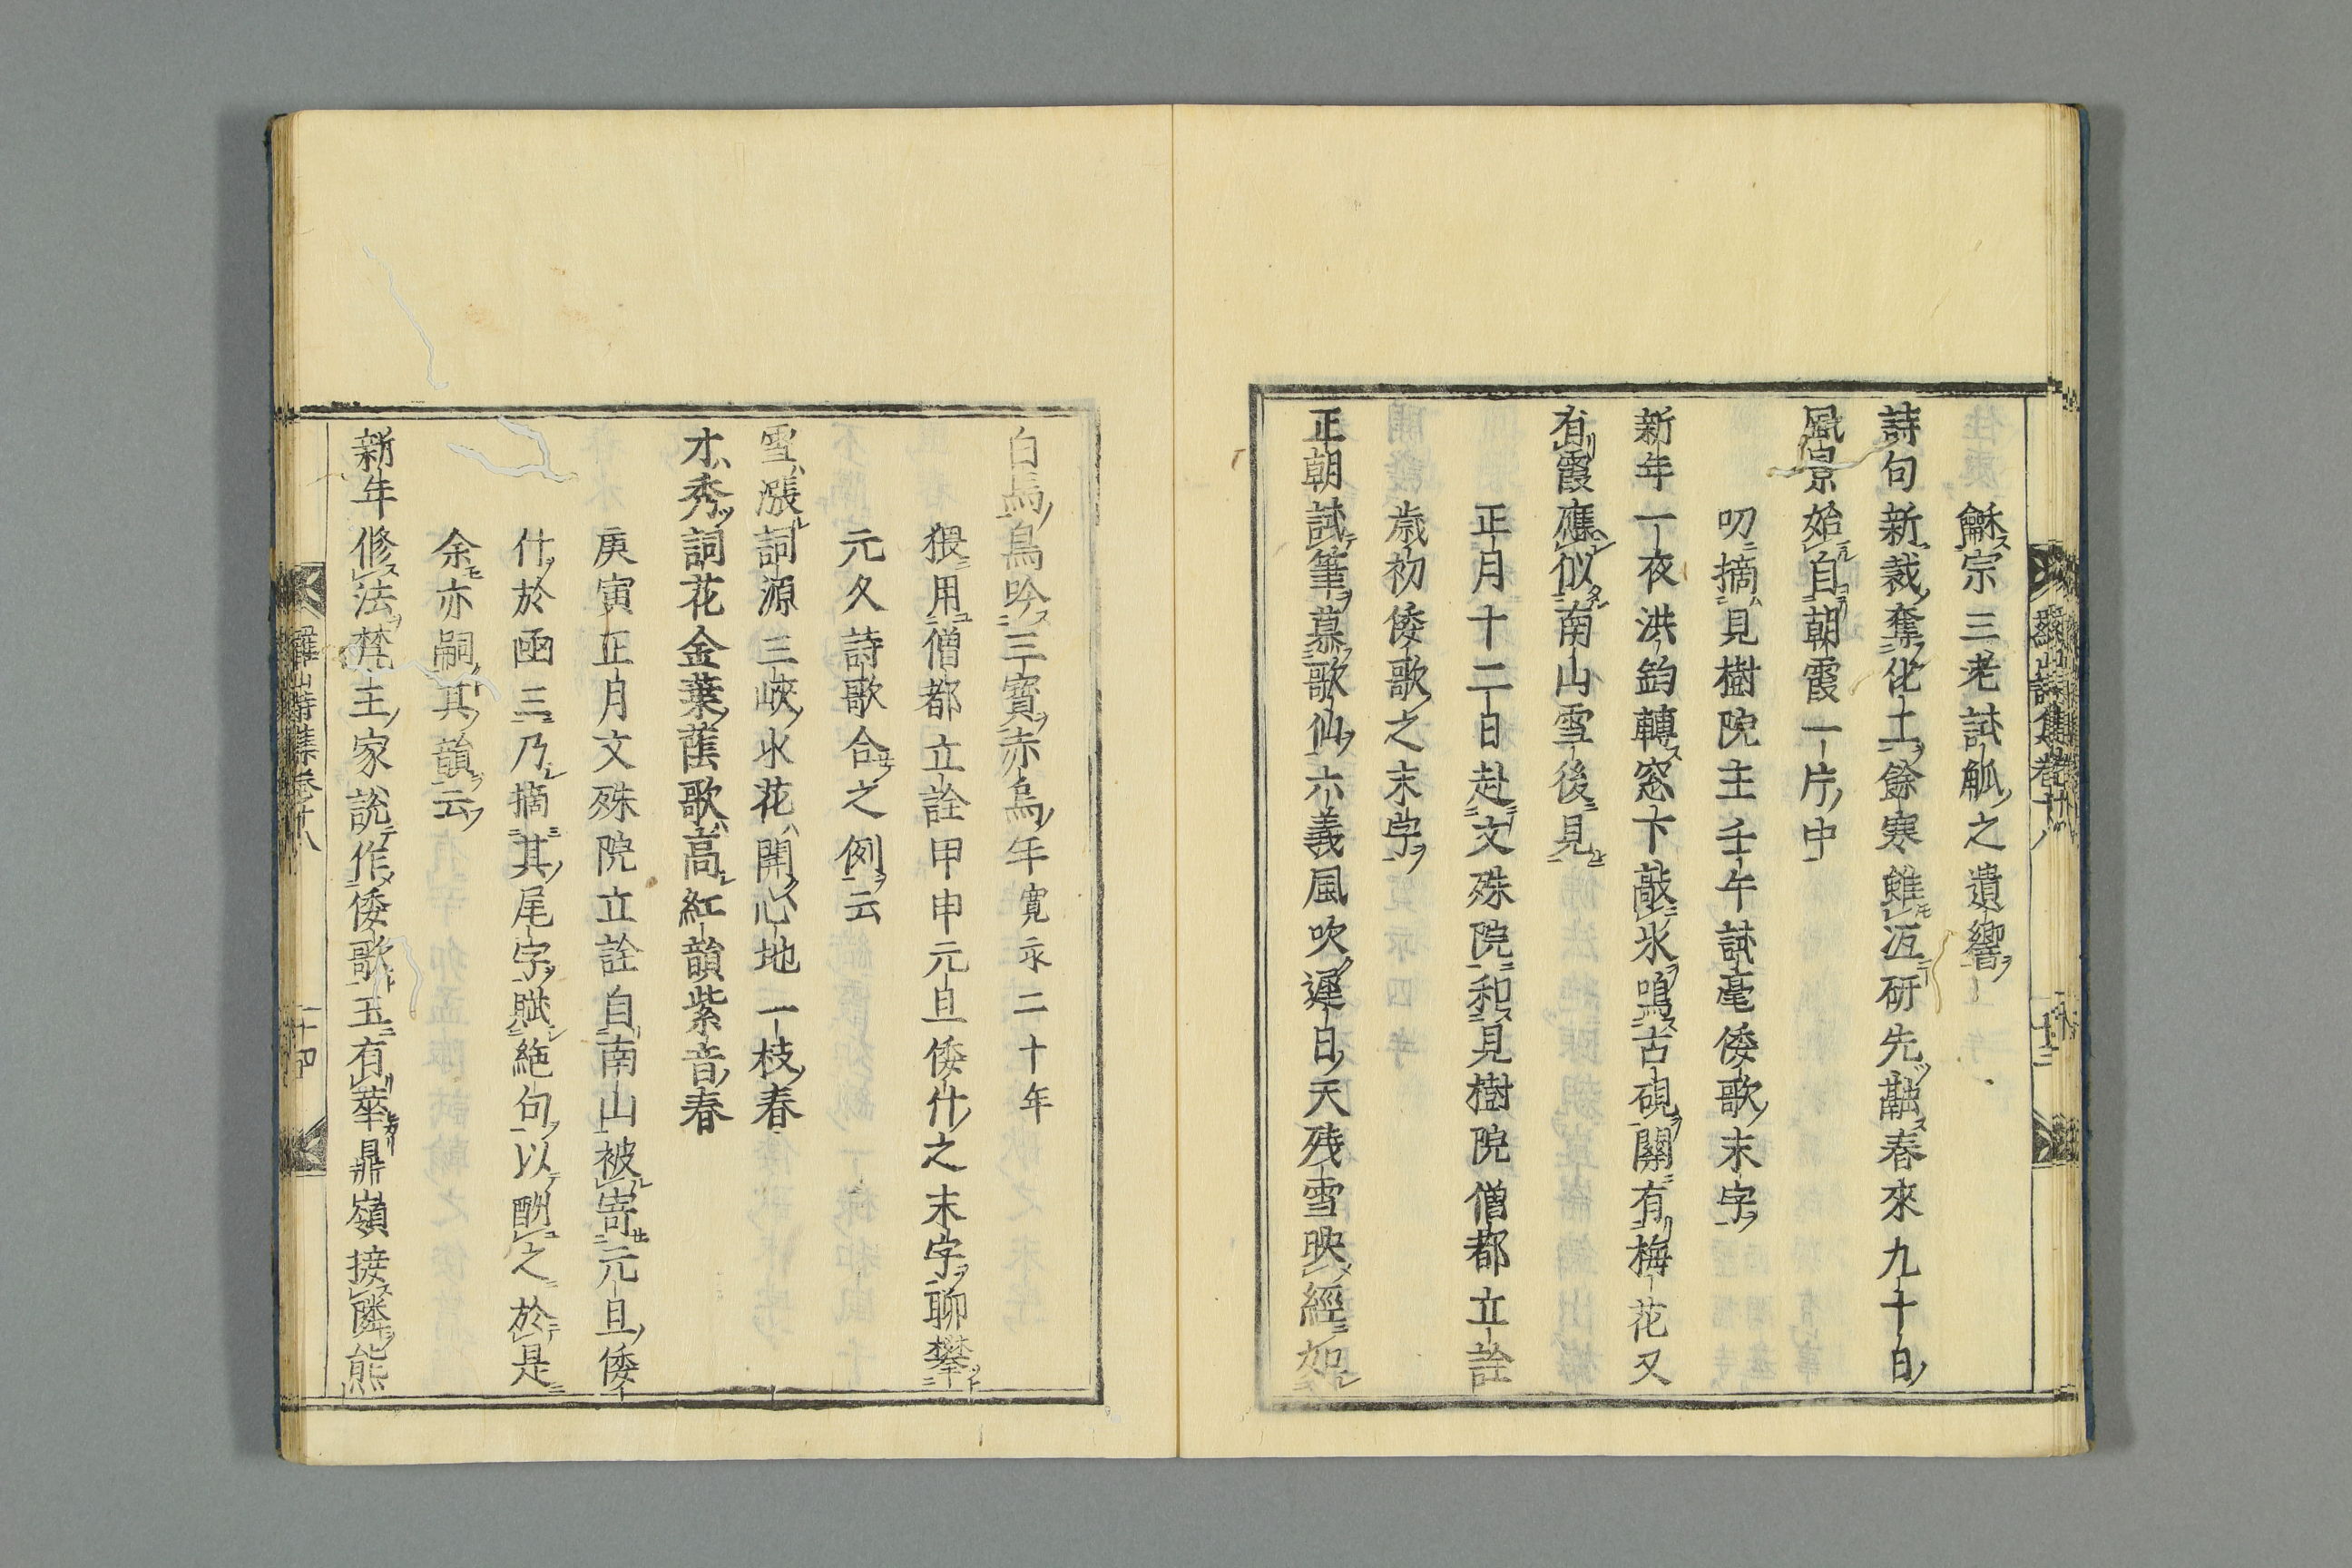 龢宗三老試觚之遺響
詩句新裁奪化工餘寒雖冱研先融春來九十日
風景始自朝霞一片中
叨摘見樹院主壬午試毫倭歌末字
新年一夜洪鈞轉窓下敲氷鳴古硯關有梅花又
有霞應似南山雪後見
正月十二日赴文殊院和見樹院僧都立詮
歳初倭歌之末字
正朝試筆慕歌仙六義風吹遲日天残雪映經如
白馬鳥吟三寳赤烏年寛永二十年
猥用僧都立詮甲申元旦倭什之末字聊攀
元久詩歌合之例云
雪漲詞源三峽水花開心地一枝春
才秀詞花金葉舊歌高紅韻紫音春
庚寅正月文殊院立詮自南山被寄元旦倭
什於函三乃摘其尾字賦絶句以酬之於是
余亦嗣其韻云
新年修法梵王家説作倭歌玉有華鼎嶺接隣熊
羅山詩集巻十八
二十四